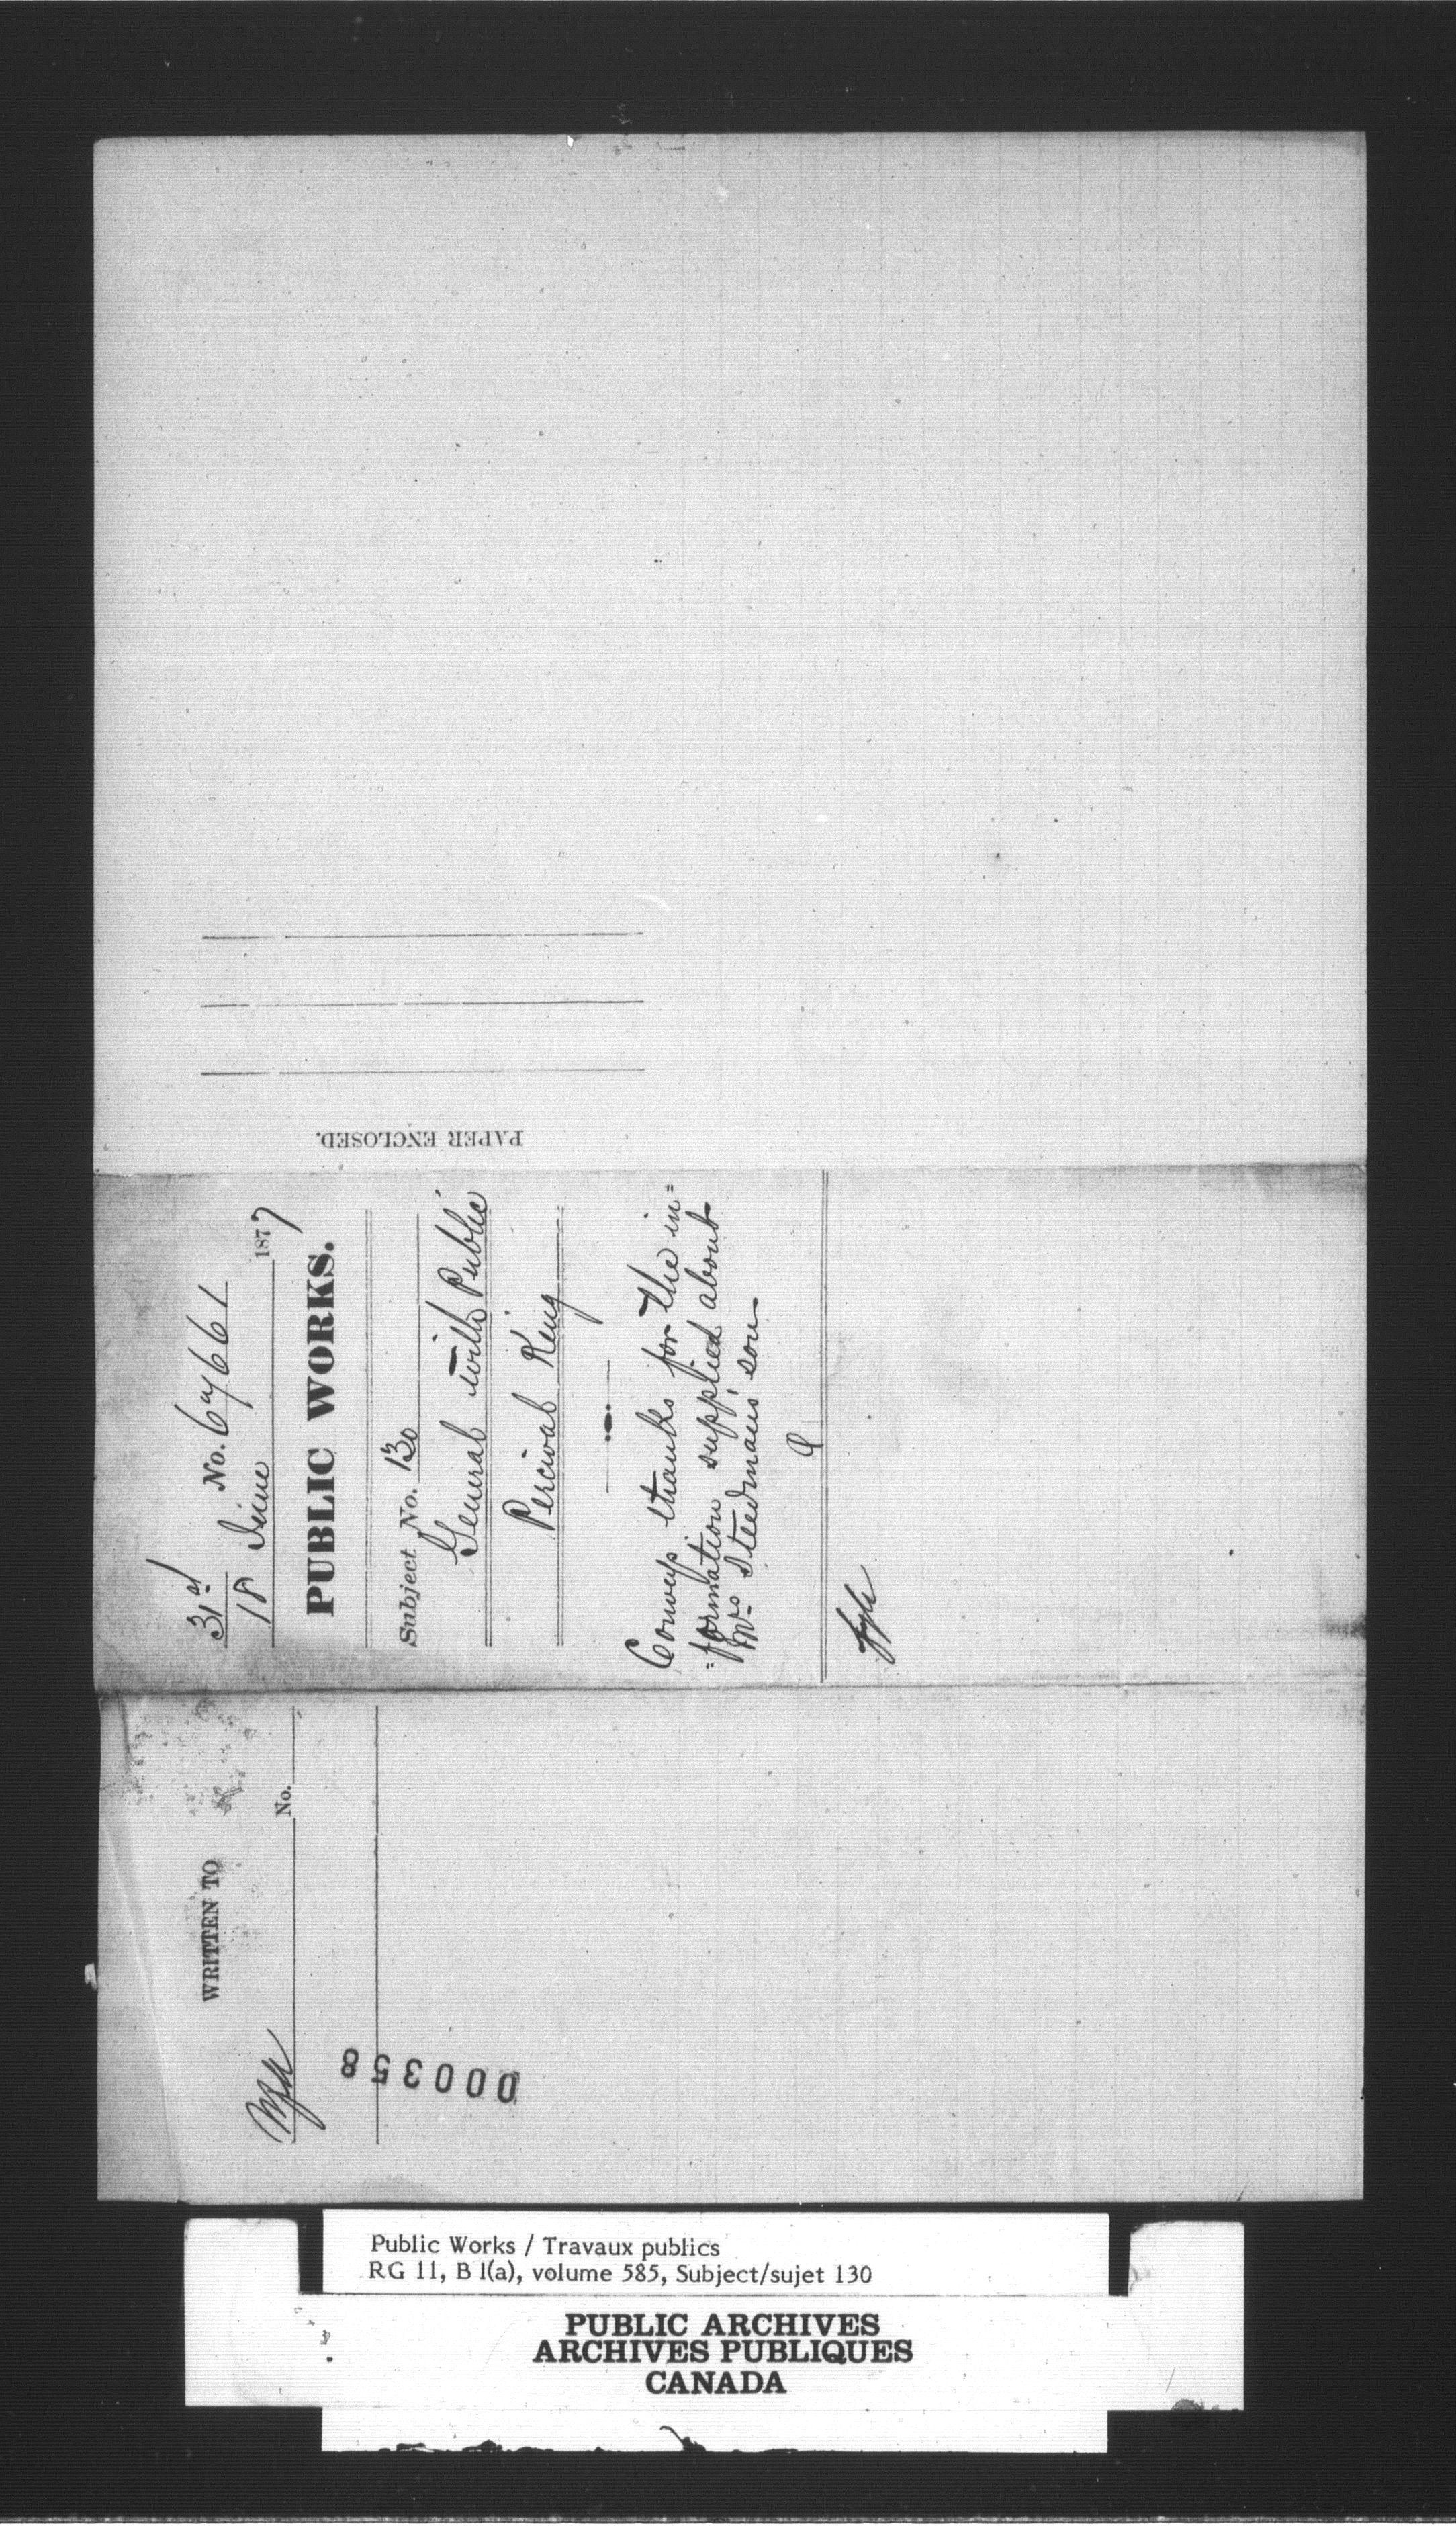 PAPER ENCLOSED.
31st No. 67661
18 June 1877
PUBLIC WORKS.
Subject No. 130
General with Public
Percival King
Conveys thanks for the in=
=formation supplied about
Mrs Steedmans son
WRITTEN TO
No.
000358
Public Works / Travaux publics
RG 11, B 1(a), volume 585, Subject/sujet 130
PUBLIC ARCHIVES
ARCHIVES PUBLIQUES
CANADA